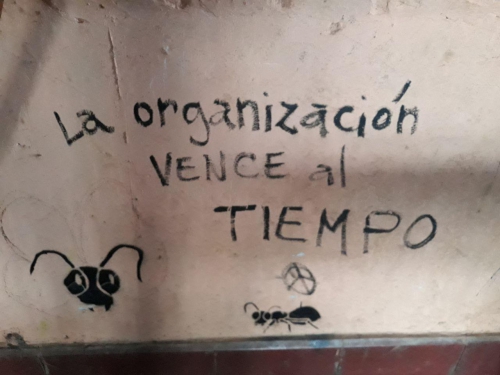 La organización
VENCE al
TIEMPO